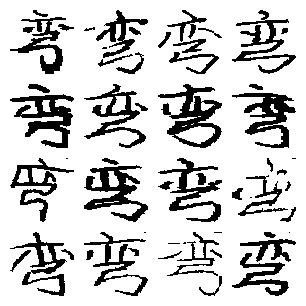 弯弯弯弯
弯弯弯弯
弯弯弯弯
弯弯弯弯